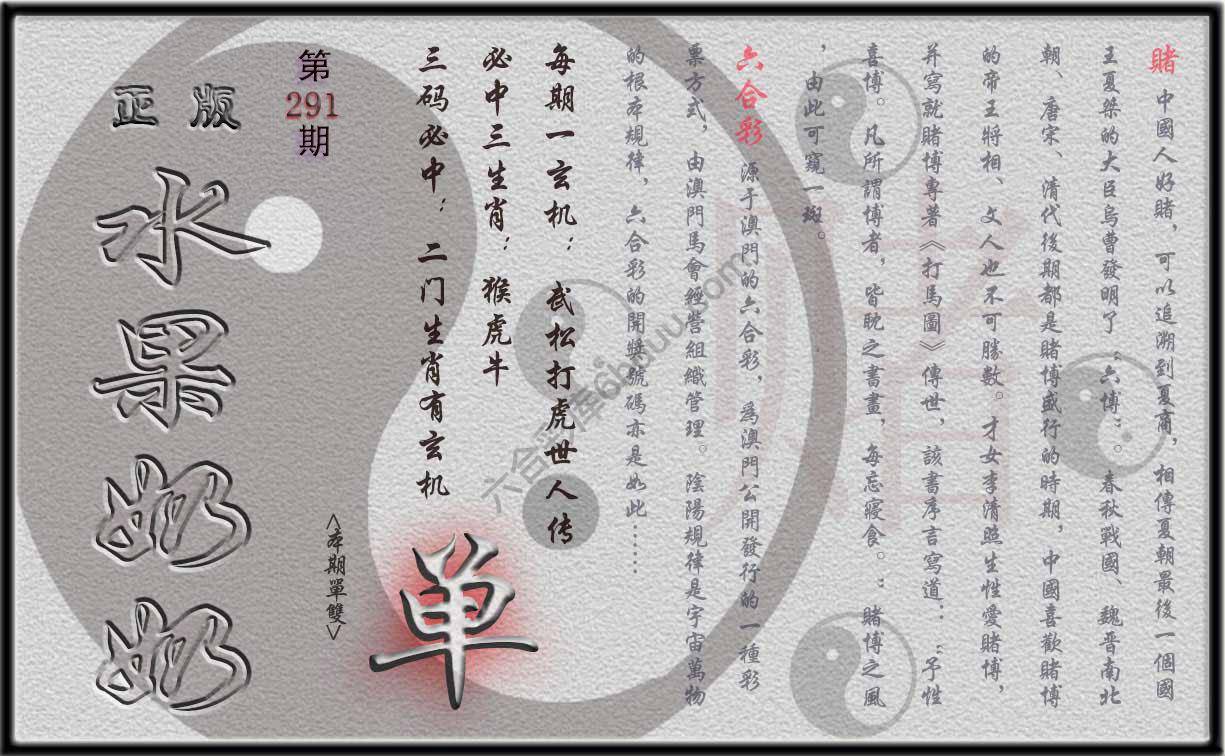 賭 中國人好賭，可以追溯到夏商，相傳夏朝最後一個國
王夏桀的大臣烏曹發明了“六博”。春秋戰國、魏晋南北
朝、唐宋、清代後期都是賭博盛行的時期，中國喜歡賭博
的帝王將相、文人也不可勝數。才女李清照生性愛賭博，
并寫就賭博專著《打馬圖》傳世，該書序言寫道：“予性
喜博。凡所謂博者，皆耽之書畫，每忘寢食。：賭博之風
，由此可窺一斑。
六合彩 源于澳門的六合彩，為澳門公開發行的一種彩
票方式，由澳門馬會經營組織管理。陰陽規律是宇宙萬物
的根本規律，六合彩的開獎號碼亦是如此……
每期一玄机：武松打虎世人传
必中三生肖：猴虎牛
三码必中：二门生肖有玄机
<本期單雙>
单
第
291
期
正版
水果奶奶
賭
六合彩库6huuu.com